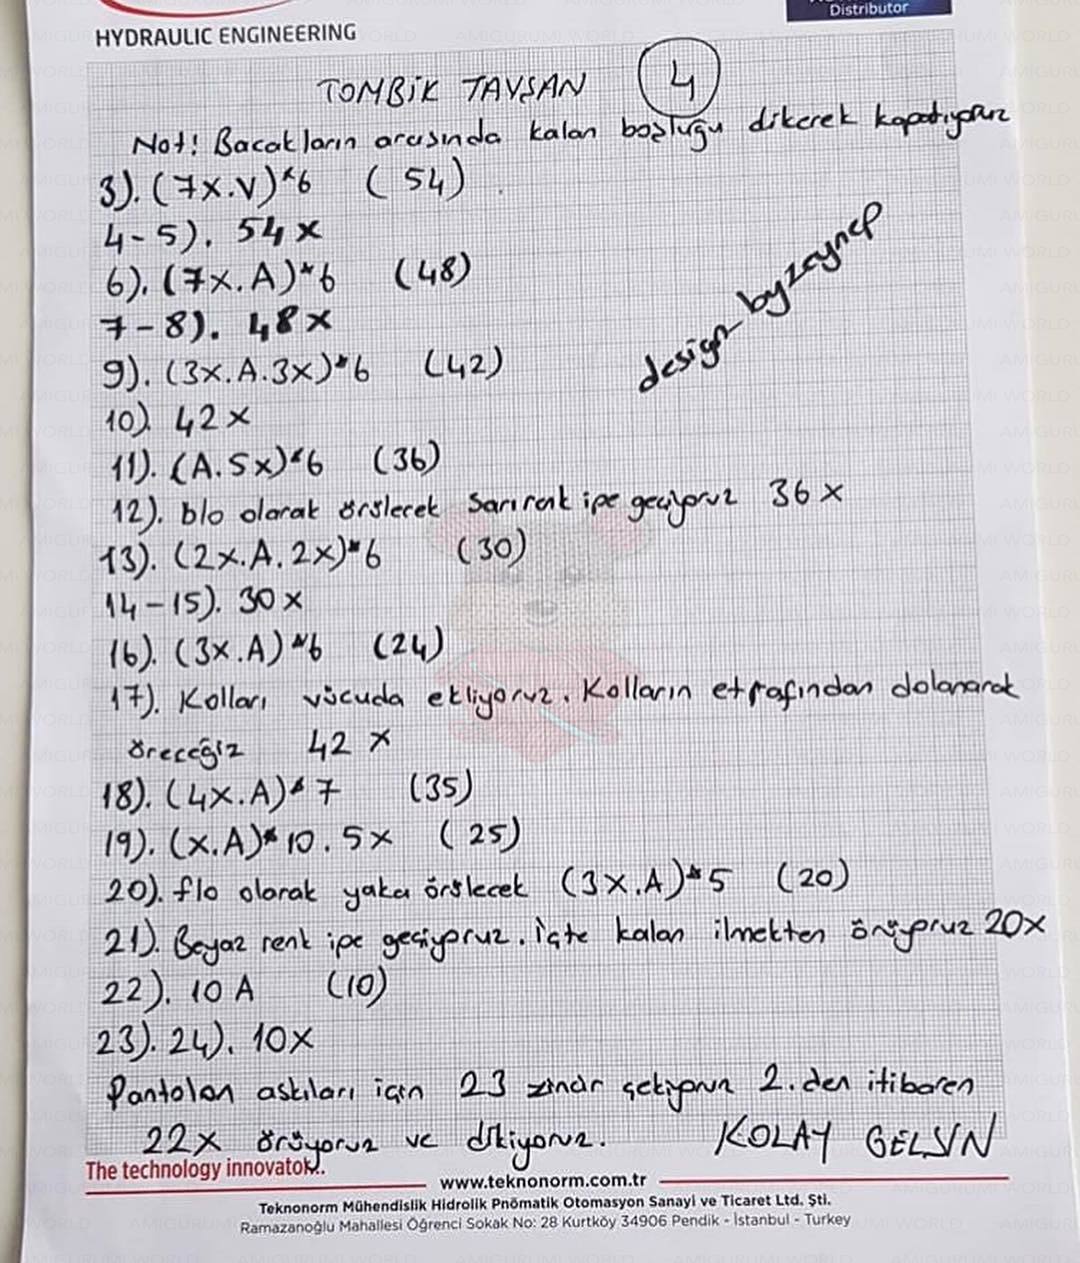 Distributor
HYDRAULIC ENGINEERING
TOMBİK TAVŞAN 4
Not! Bacakların arasında kalan boşluğu dikerek kapatıyoruz
3). (7x.V)*6 (54)
4-5). 54x
6). (7x.A)*6 (48)
7-8). 48x
9). (3x.A.3x)*6 (42)
10). 42x
11). (A.5x)*6 (36)
12). blo olarak örülecek Sarı renk ipe geçiyoruz 36x
13). (2x.A.2x)*6 (30)
14-15). 30x
16). (3x.A)*6 (24)
17). Kolları vücuda ekliyoruz. Kolların etrafından dolanarak
öreceğiz 42x
18). (4x.A)*7 (35)
19). (x.A)*10.5x (25)
20). flo olarak yaka örülecek (3x.A)*5 (20)
21). Beyaz renk ipe geçiyoruz. İçte kalan ilmekten örüyoruz 20x
22). 10A (10)
23). 24). 10x
Pantolon askıları için 23 zincir çekiyoruz 2.den itibaren
22x örüyoruz ve dikiyoruz. KOLAY GELSİN
design byzeynep
The technology innovatok..
www.teknonorm.com.tr
Teknonorm Mühendislik Hidrolik Pnömatik Otomasyon Sanayi ve Ticaret Ltd. Şti.
Ramazanoğlu Mahallesi Öğrenci Sokak No: 28 Kurtköy 34906 Pendik - İstanbul - Turkey
AMIGURUMI WORLD